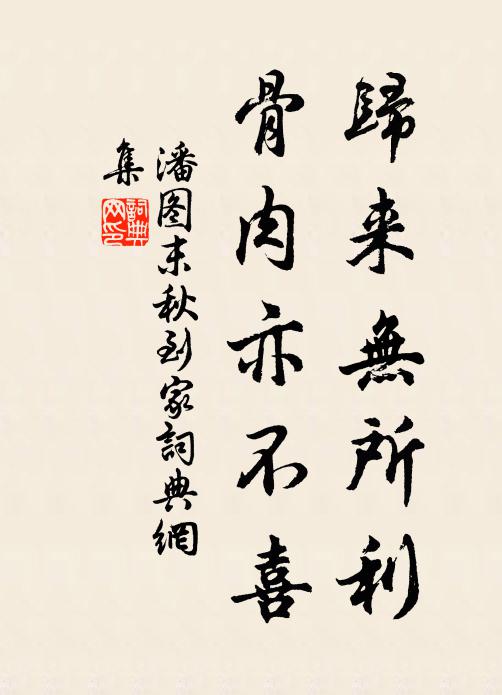 歸来無所利
骨肉亦不喜
潘图末秋到家詞典網
集
詞典
网印